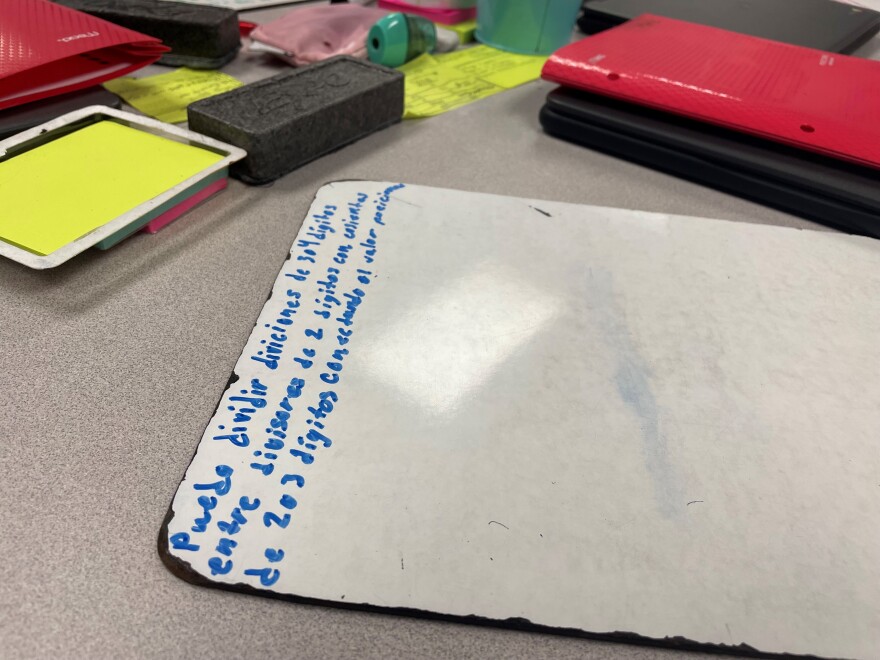 Puedo dividir diviciones de 3 o 4 dígitos
entre divisores de 2 dígitos con cosientes
de 2 o 3 dígitos conectando el valor posicional